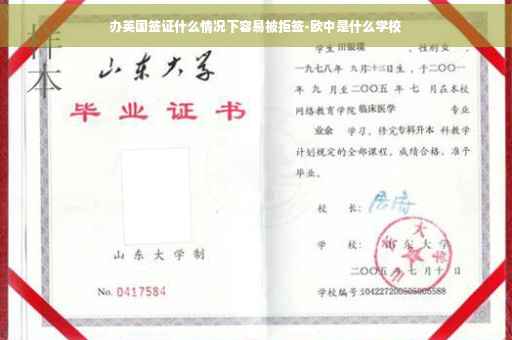 办英国签证什么情况下容易被拒签-欧中是什么学校
样本
山东大学
毕业证书
山东大学制
No. 0417584
学生 田银瑞 ，性别女 ，
一九七八年 九月十三日生，于二〇〇一
年 九 月至二〇〇五 年 七 月在本校
网络教育学院 临床医学 专业
业余 学习，修完专科升本 科教学
计划规定的全部课程，成绩合格，准予
毕业。
校 长：
学 校： 山东大学
二〇〇五 年 七 月 十 日
学校编号: